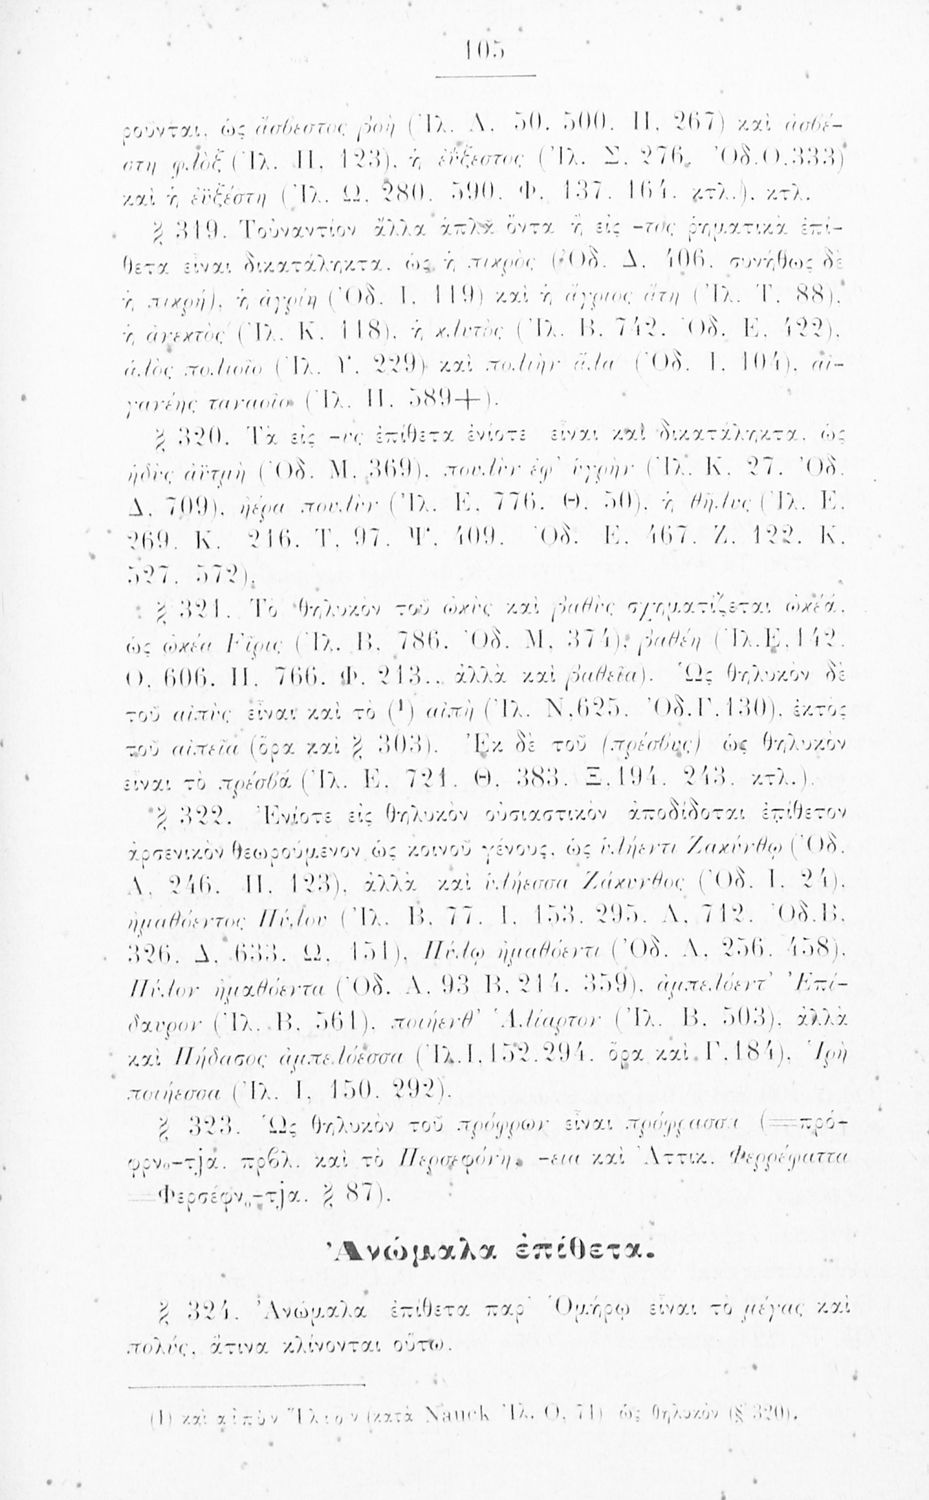 105
ροῦνται, ὡς ἄσβεστος βοὴ (Ἰλ. Λ. 50. 500. Π. 267) καὶ ἀσβέ-
στη φλὸξ (Ἰλ. Π. 123), ἡ ἐΰξεστος (Ἰλ. Σ. 276. Ὀδ. Ο. 333)
καὶ ἡ ἐϋξέστη (Ἰλ. Ω. 280. 590. Φ. 137. 164. κτλ.). κτλ.
§ 319. Τοὐναντίον ἄλλα ἁπλᾶ ὄντα ἢ εἰς -τὸς ῥηματικὰ ἐπί-
θετα εἶναι δικατάληκτα, ὡς ἡ πικρὸς (Ὀδ. Δ. 406. συνήθως δὲ
ἡ πικρή), ἡ ἀγρίη (Ὀδ. Ι. 119) καὶ ἡ ἄγριος ἄτη (Ἰλ. Τ. 88),
ἡ ἀνεκτὸς (Ἰλ. Κ. 118), ἡ κλυτὸς (Ἰλ. Β. 742. Ὀδ. Ε. 422),
ἁλὸς πολιοῖο (Ἰλ. Υ. 229) καὶ πολιὴν ἅλα (Ὀδ. Ι. 104), αἰ-
γανέης ταναοῖο (Ἰλ. Π. 589+).
§ 320. Τὰ εἰς -υς ἐπίθετα ἐνίοτε εἶναι καὶ δικατάληκτα, ὡς
ἡδὺς ἀϋτμὴ (Ὀδ. Μ. 369), πουλὺν ἐφ᾽ ὑγρὴν (Ἰλ. Κ. 27. Ὀδ.
Δ. 709), ἠέρα πουλὺν (Ἰλ. Ε. 776. Θ. 50), ἡ θῆλυς (Ἰλ. Ε.
269. Κ. 216. Τ. 97. Ψ. 409. Ὀδ. Ε. 467. Ζ. 122. Κ.
527. 572).
§ 321. Τὸ θηλυκὸν τοῦ ὠκὺς καὶ βαθὺς σχηματίζεται ὠκέα,
ὡς ὠκέα Ϝῖρις (Ἰλ. Β. 786. Ὀδ. Μ. 374), βαθέη (Ἰλ. Ε. 142.
Ο. 606. Π. 766. Φ. 213.. ἀλλὰ καὶ βαθεῖα). Ὡς θηλυκὸν δὲ
τοῦ αἰπὺς εἶναι καὶ τὸ (¹) αἰπὴ (Ἰλ. Ν. 625. Ὀδ. Γ. 130), ἐκτὸς
τοῦ αἰπεῖα (ὅρα καὶ § 303). Ἐκ δὲ τοῦ (πρέσβυς) ὡς θηλυκὸν
εἶναι τὸ πρέσβᾰ (Ἰλ. Ε. 721. Θ. 383. Ξ. 194. 243. κτλ.).
§ 322. Ἐνίοτε εἰς θηλυκὸν οὐσιαστικὸν ἀποδίδοται ἐπίθετον
ἀρσενικὸν θεωρούμενον ὡς κοινοῦ γένους, ὡς ὑλήεντι Ζακύνθῳ (Ὀδ.
Α. 246. Π. 123), ἀλλὰ καὶ ὑλήεσσα Ζάκυνθος (Ὀδ. Ι. 24),
ἠμαθόεντος Πύλου (Ἰλ. Β. 77. Ι. 153. 295. Λ. 712. Ὀδ. Β.
326. Δ. 633. Ω. 151), Πύλῳ ἠμαθόεντι (Ὀδ. Λ. 256. 458),
Πύλον ἠμαθόεντα (Ὀδ. Α. 93 Β. 214. 359), ἀμπελόεντ᾽ Ἐπί-
δαυρον (Ἰλ. Β. 561), ποιήενθ᾽ Ἁλίαρτον (Ἰλ. Β. 503), ἀλλὰ
καὶ Πήδασος ἀμπελόεσσα (Ἰλ. Ι. 152. 294. ὅρα καὶ Γ. 184), Ἱρὴ
ποιήεσσα (Ἰλ. Ι. 150. 292).
§ 323. Ὡς θηλυκὸν τοῦ πρόφρων εἶναι πρόφρασσα (=πρό-
φρν-τjα, πρβλ. καὶ τὸ Περσεφόνη, -εια καὶ Ἀττικ. Φερρέφαττα
=Φερσέφν-τjα. § 87).
Ἀνώμαλα ἐπίθετα.
§ 324. Ἀνώμαλα ἐπίθετα παρ᾽ Ὁμήρῳ εἶναι τὸ μέγας καὶ
πολύς, ἅτινα κλίνονται οὕτω.
(1) καὶ αἰπὺν Ἴλιον (κατὰ Nauck Ἰλ. Ο. 71) ὡς θηλυκὸν (§ 320).